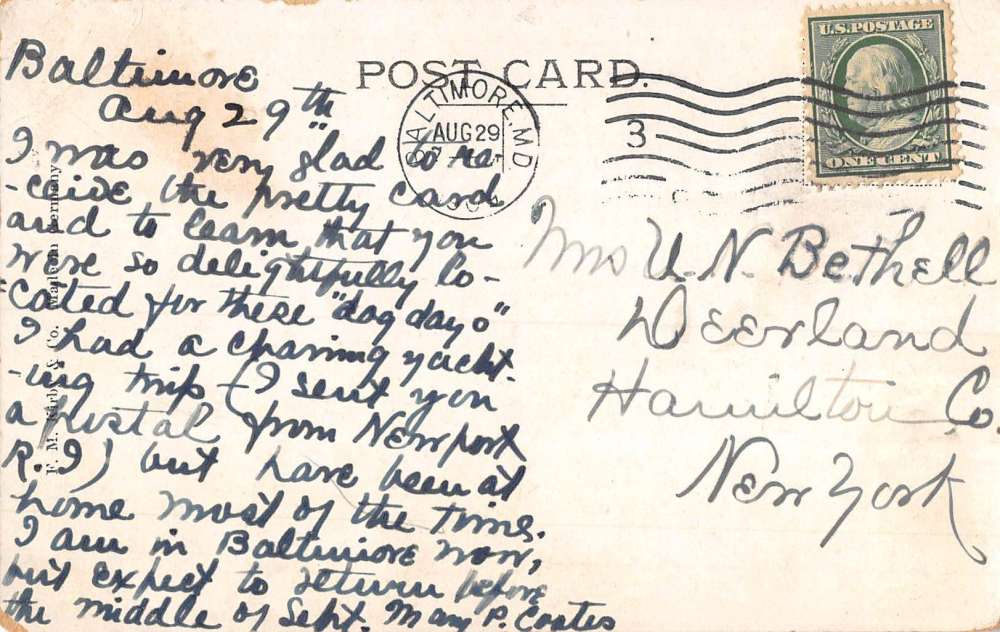 POST CARD.
U.S. POSTAGE
ONE CENT
BALTIMORE, MD
AUG 29
3
Baltimore
Aug 29th
I was very glad to re-
-ceive the pretty card
and to learn that you
were so delightfully lo-
-cated for these "dog days"
I had a charming yacht-
-ing trip - (I sent you
a postal from Newport
R. I) but have been at
home most of the time.
I am in Baltimore now,
but expect to return before
the middle of Sept. Mary P. Coates
Mrs U. N. Bethell
Deerland
Hamilton Co.
New York
F. M. Kirby & Co. Germany